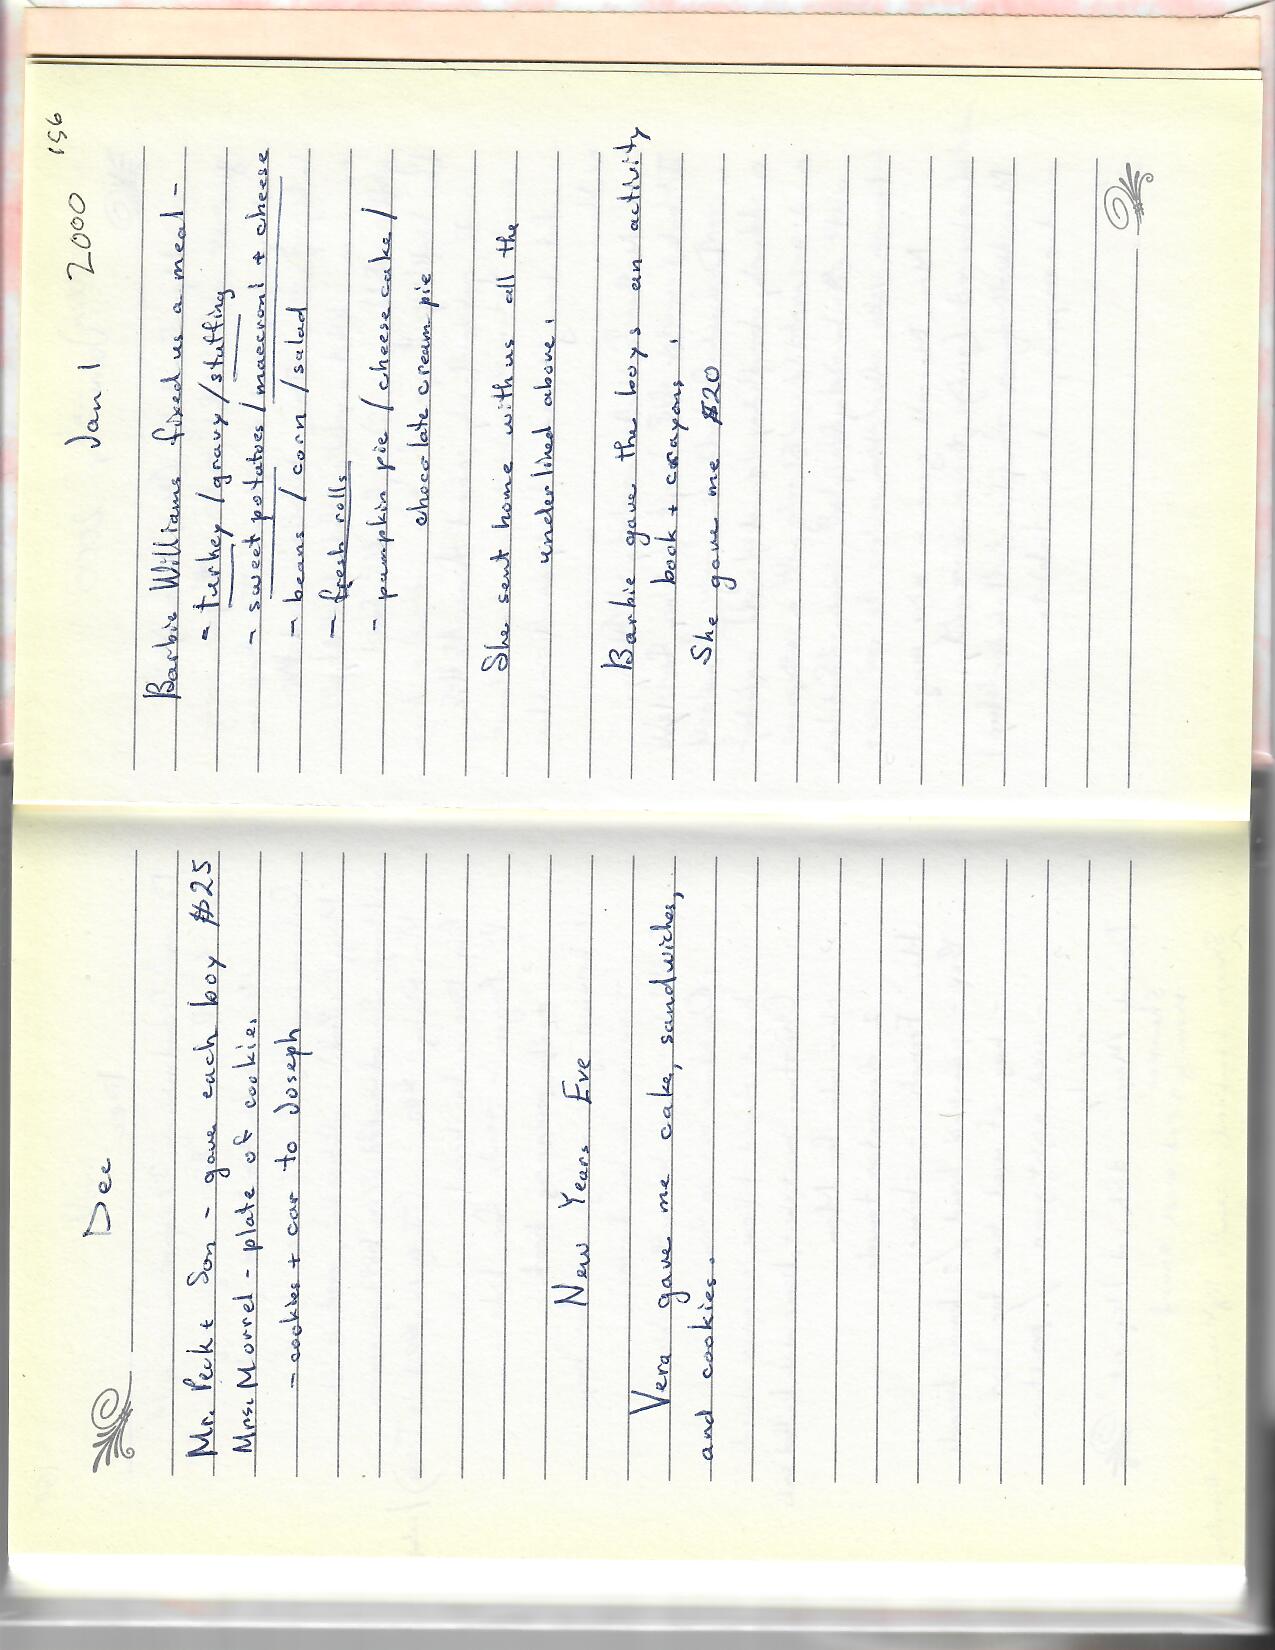 Dec
Mr. Peck + Son - gave each boy $25
Mrs. Morrel - plate of cookies
- cookies + car to Joseph
New Years Eve
Vera gave me cake, sandwiches,
and cookies.
156
Jan 1 2000
Barbie Williams fixed us a meal -
- turkey / gravy / stuffing
- sweet potatoes / maccroni + cheese
- beans / corn / salad
- fresh rolls
- pumpkin pie / cheese cake /
chocolate cream pie
She sent home with us all the
underlined above.
Barbie gave the boys an activity
book + crayons.
She gave me $20